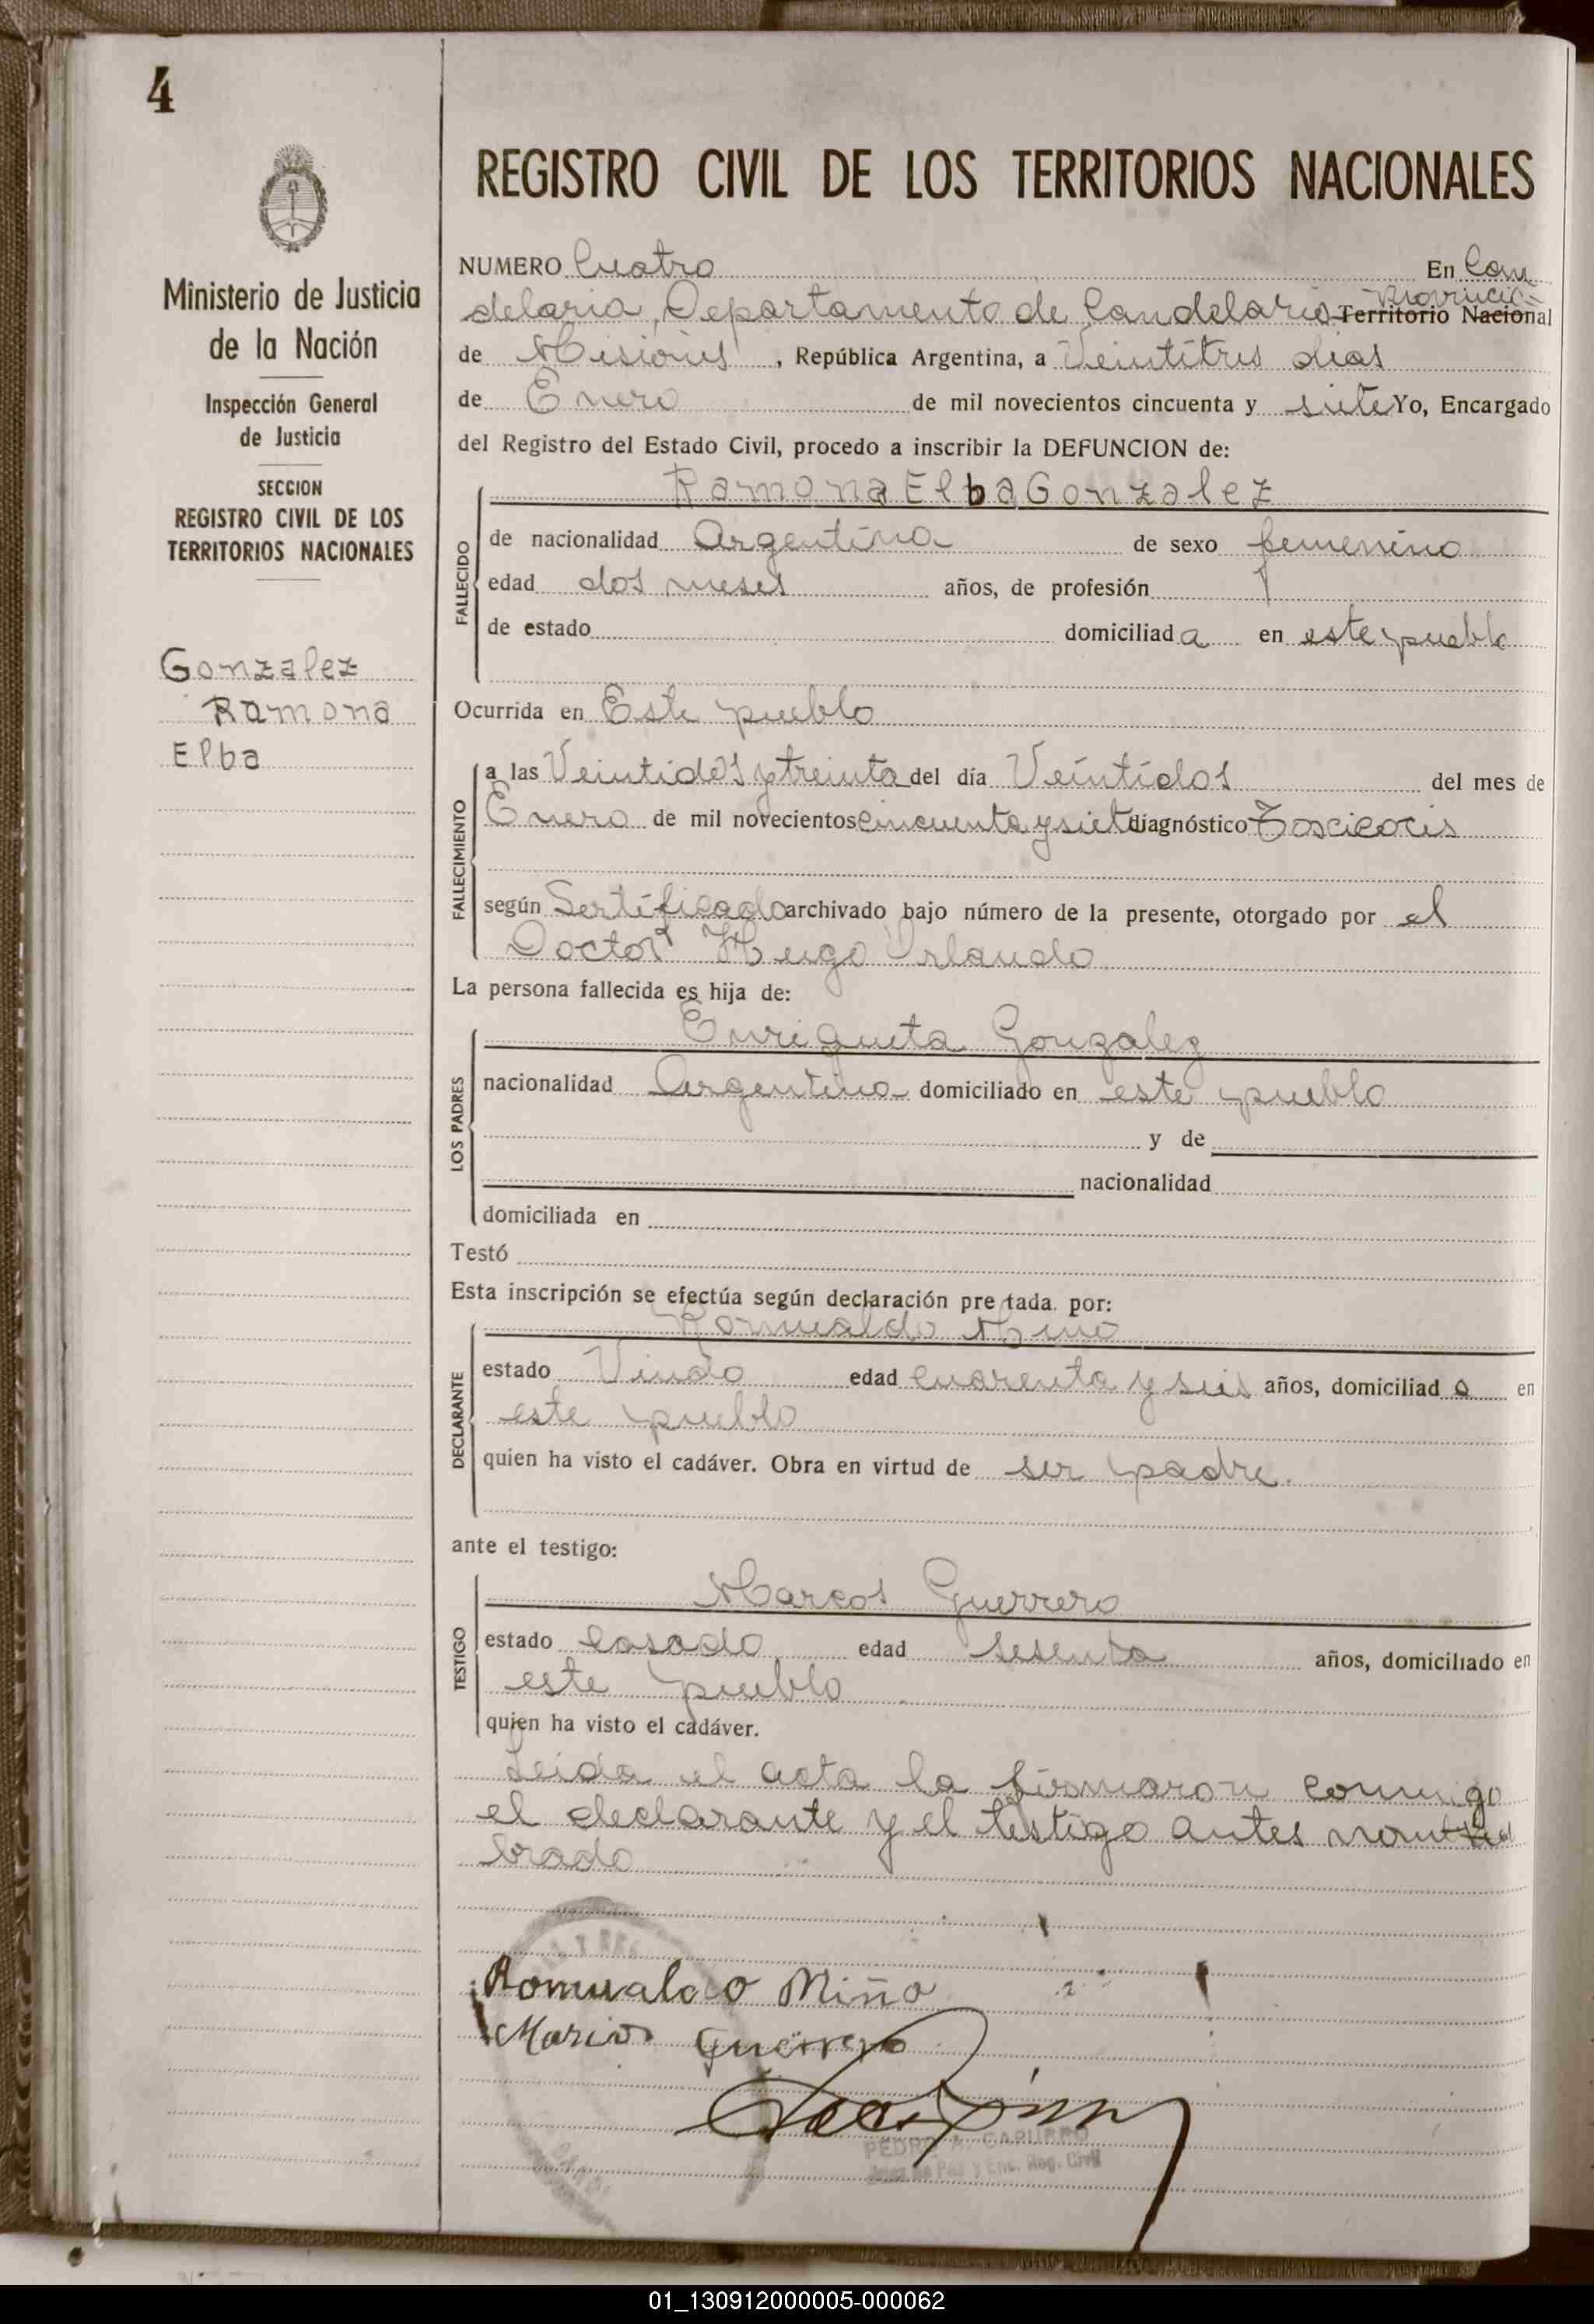 4
Ministerio de Justicia
de la Nación
Inspección General
de Justicia
SECCION
REGISTRO CIVIL DE LOS
TERRITORIOS NACIONALES
Gonzalez
Ramona
Elba
REGISTRO CIVIL DE LOS TERRITORIOS NACIONALES
NUMERO Cuatro En Can
delaria, Departamento de Candelaria Provincia Territorio Nacional
de Misiones, República Argentina, a Veintitres dias
de Enero de mil novecientos cincuenta y siete Yo, Encargado
del Registro del Estado Civil, procedo a inscribir la DEFUNCION de:
Ramona Elba Gonzalez
FALLECIDO
de nacionalidad Argentina de sexo femenino
edad dos meses años, de profesión
de estado domiciliad a en este pueblo
Ocurrida en Este pueblo
FALLECIMIENTO
a las Veintidos y treinta del día Veintidos del mes de
Enero de mil novecientos cincuenta y siete diagnóstico Toscicocis
según Sertificado archivado bajo número de la presente, otorgado por el
Doctor Hugo Orlando
La persona fallecida es hija de:
LOS PADRES
Enriqueta Gonzalez
nacionalidad Argentina domiciliado en este pueblo
y de
nacionalidad
domiciliada en
Testó
Esta inscripción se efectúa según declaración pre tada. por:
DECLARANTE
Romualdo Mino
estado Viudo edad cuarenta y seis años, domiciliad o en
este pueblo
quien ha visto el cadáver. Obra en virtud de ser padre.
ante el testigo:
TESTIGO
Marcos Guerrero
estado casado edad sesenta años, domiciliado en
este pueblo
quien ha visto el cadáver.
Leida el acta la firmaron conmigo
el declarante y el testigo antes nom
brado
Romualdo Miño
Guerrero
PEDRO A. CAPURRO
Juez de Paz y Enc. Reg. Civil
01_130912000005-000062